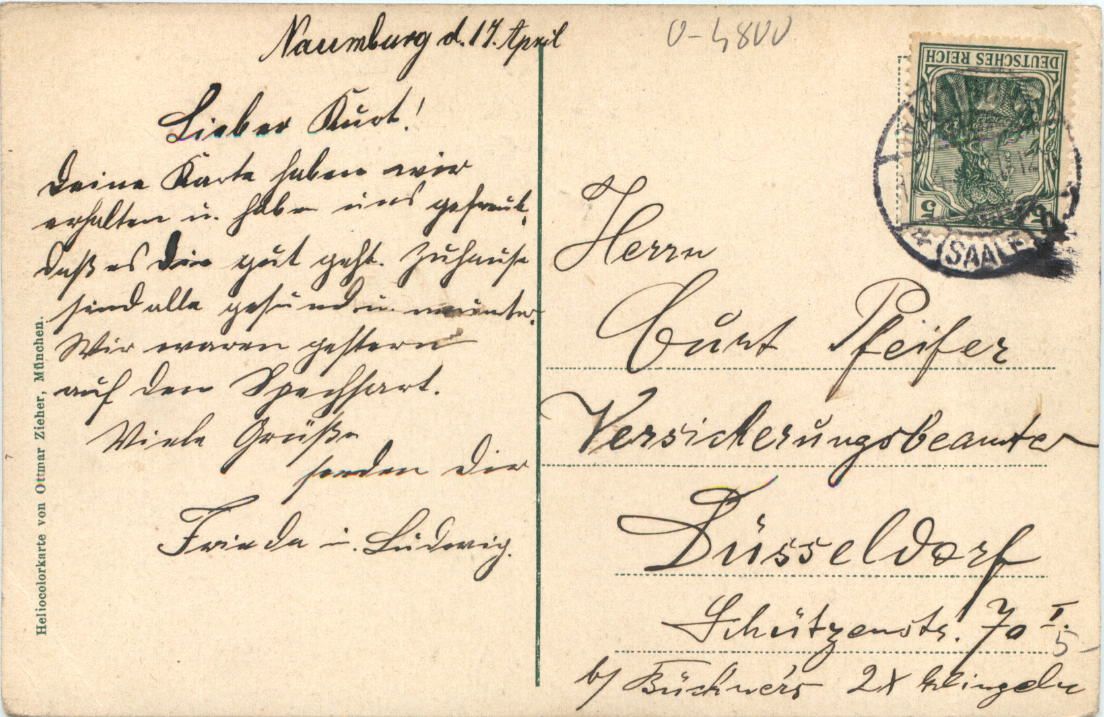 Naumburg d. 17. April
Lieber Kurt!
Deine Karte haben wir
erhalten u. haben uns gefreut,
daß es Dir gut geht. Zuhause
sind alle gesund u. munter.
Wir waren gestern
auf den Spechsart.
Viele Grüße
senden Dir
Frieda u. Ludwig.
Heliocolorkarte von Ottmar Zieher, München.
0-4800
DEUTSCHES REICH
5
(SAALE)
Herrn
Curt Pfeifer
Versicherungsbeamter
Düsseldorf
Schützenstr. 70 I.
5
b/ Büchner's 2X klingeln